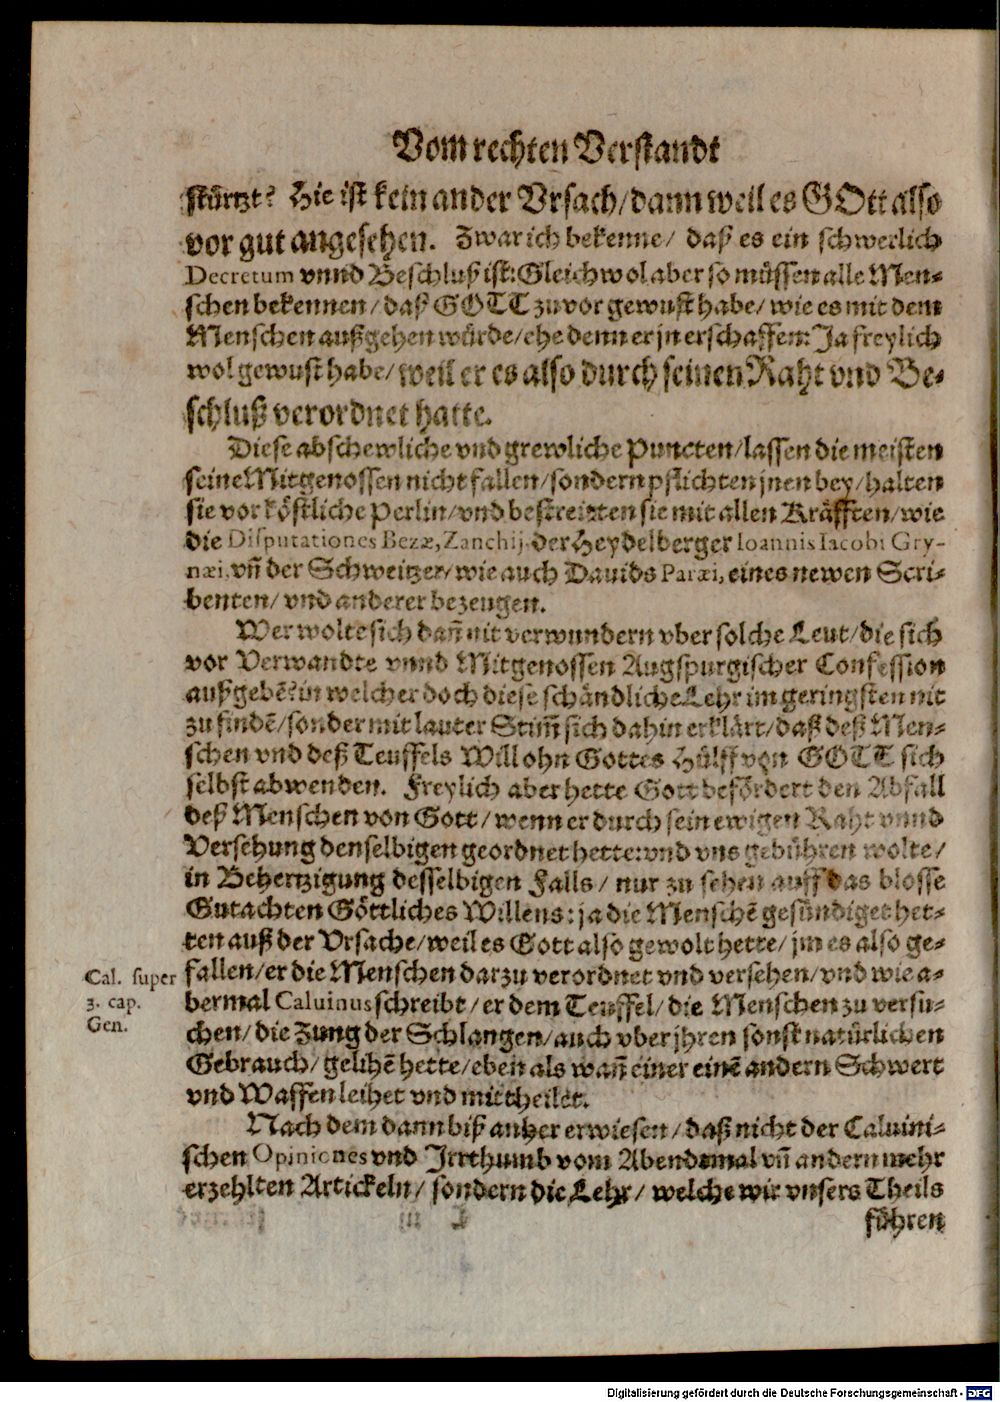 Vom rechten Verstandt
stürtzt? Hie ist kein ander Vrsach/dann weil es GOtt also
vor gut angesehen. Zwar ich bekenne/ daß es ein schwerlich
Decretum vnnd Beschluß ist: Gleichwol aber so müssen alle Men-
schen bekennen/daß GOTT zuvor gewust habe/ wie es mit dem
Menschen außgehen würde/ehe denn er jn erschaffen: Ja freylich
wol gewust habe/ weil er es also durch seinen Raht vnd Be-
schluß verordnet hatte.
Diese abschewliche vnd grewliche Puncten/lassen die meisten
seine Mitgenossen nicht fallen/sondern pflichten jnen bey/halten
sie vor köstliche Perlin/vnd bestreitten sie mit allen Kräfften/wie
die Disputationes Bezæ, Zanchij, der Heydelberger Ioannis Iacobi Gry-
næi, vñ der Schweitzer/ wie auch Dauids Paræi, eines newen Scri-
benten/ vnd anderer bezeugen.
Wer wolte sich dañ nit verwundern vber solche Leut/die sich
vor Verwandte vnnd Mitgenossen Augspurgischer Confession
außgebẽ? in welcher doch diese schändliche Lehr im geringsten nit
zu findẽ/sonder mit lauter Stim̃ sich dahin erklärt/daß deß Men-
schen vnd deß Teuffels Will ohn Gottes Hülff von GOTT sich
selbst abwenden. Freylich aber hette Gott befördert den Abfall
deß Menschen von Gott/wenn er durch sein ewigen Raht vnnd
Versehung denselbigen geordnet hette: vnd vns gebühren wolte/
in Behertzigung desselbigen Falls/ nur zu sehen auff das blosse
Gutachten Göttliches Willens: ja die Menschẽ gesündiget het-
ten auß der Vrsache/weil es Gott also gewolt hette/jm es also ge-
fallen/er die Menschen darzu verordnet vnd versehen/vnd wie a-
Cal. super
3. cap.
Gen.
bermal Caluinus schreibt/er dem Teuffel/die Menschen zu versu-
chen/die Zung der Schlangen/auch vber jhren sonst natürlichen
Gebrauch/gelihẽ hette/eben als wañ einer einẽ andern Schwert
vnd Waffen leihet vnd mittheilet.
Nach dem dann biß anher erwiesen/daß nicht der Caluini-
schen Opiniones vnd Jrrthumb vom Abendmal vñ andern mehr
erzehlten Artickeln/ sondern die Lehr/ welche wir vnsers Theils
führen
Digitalisierung gefördert durch die Deutsche Forschungsgemeinschaft - DFG